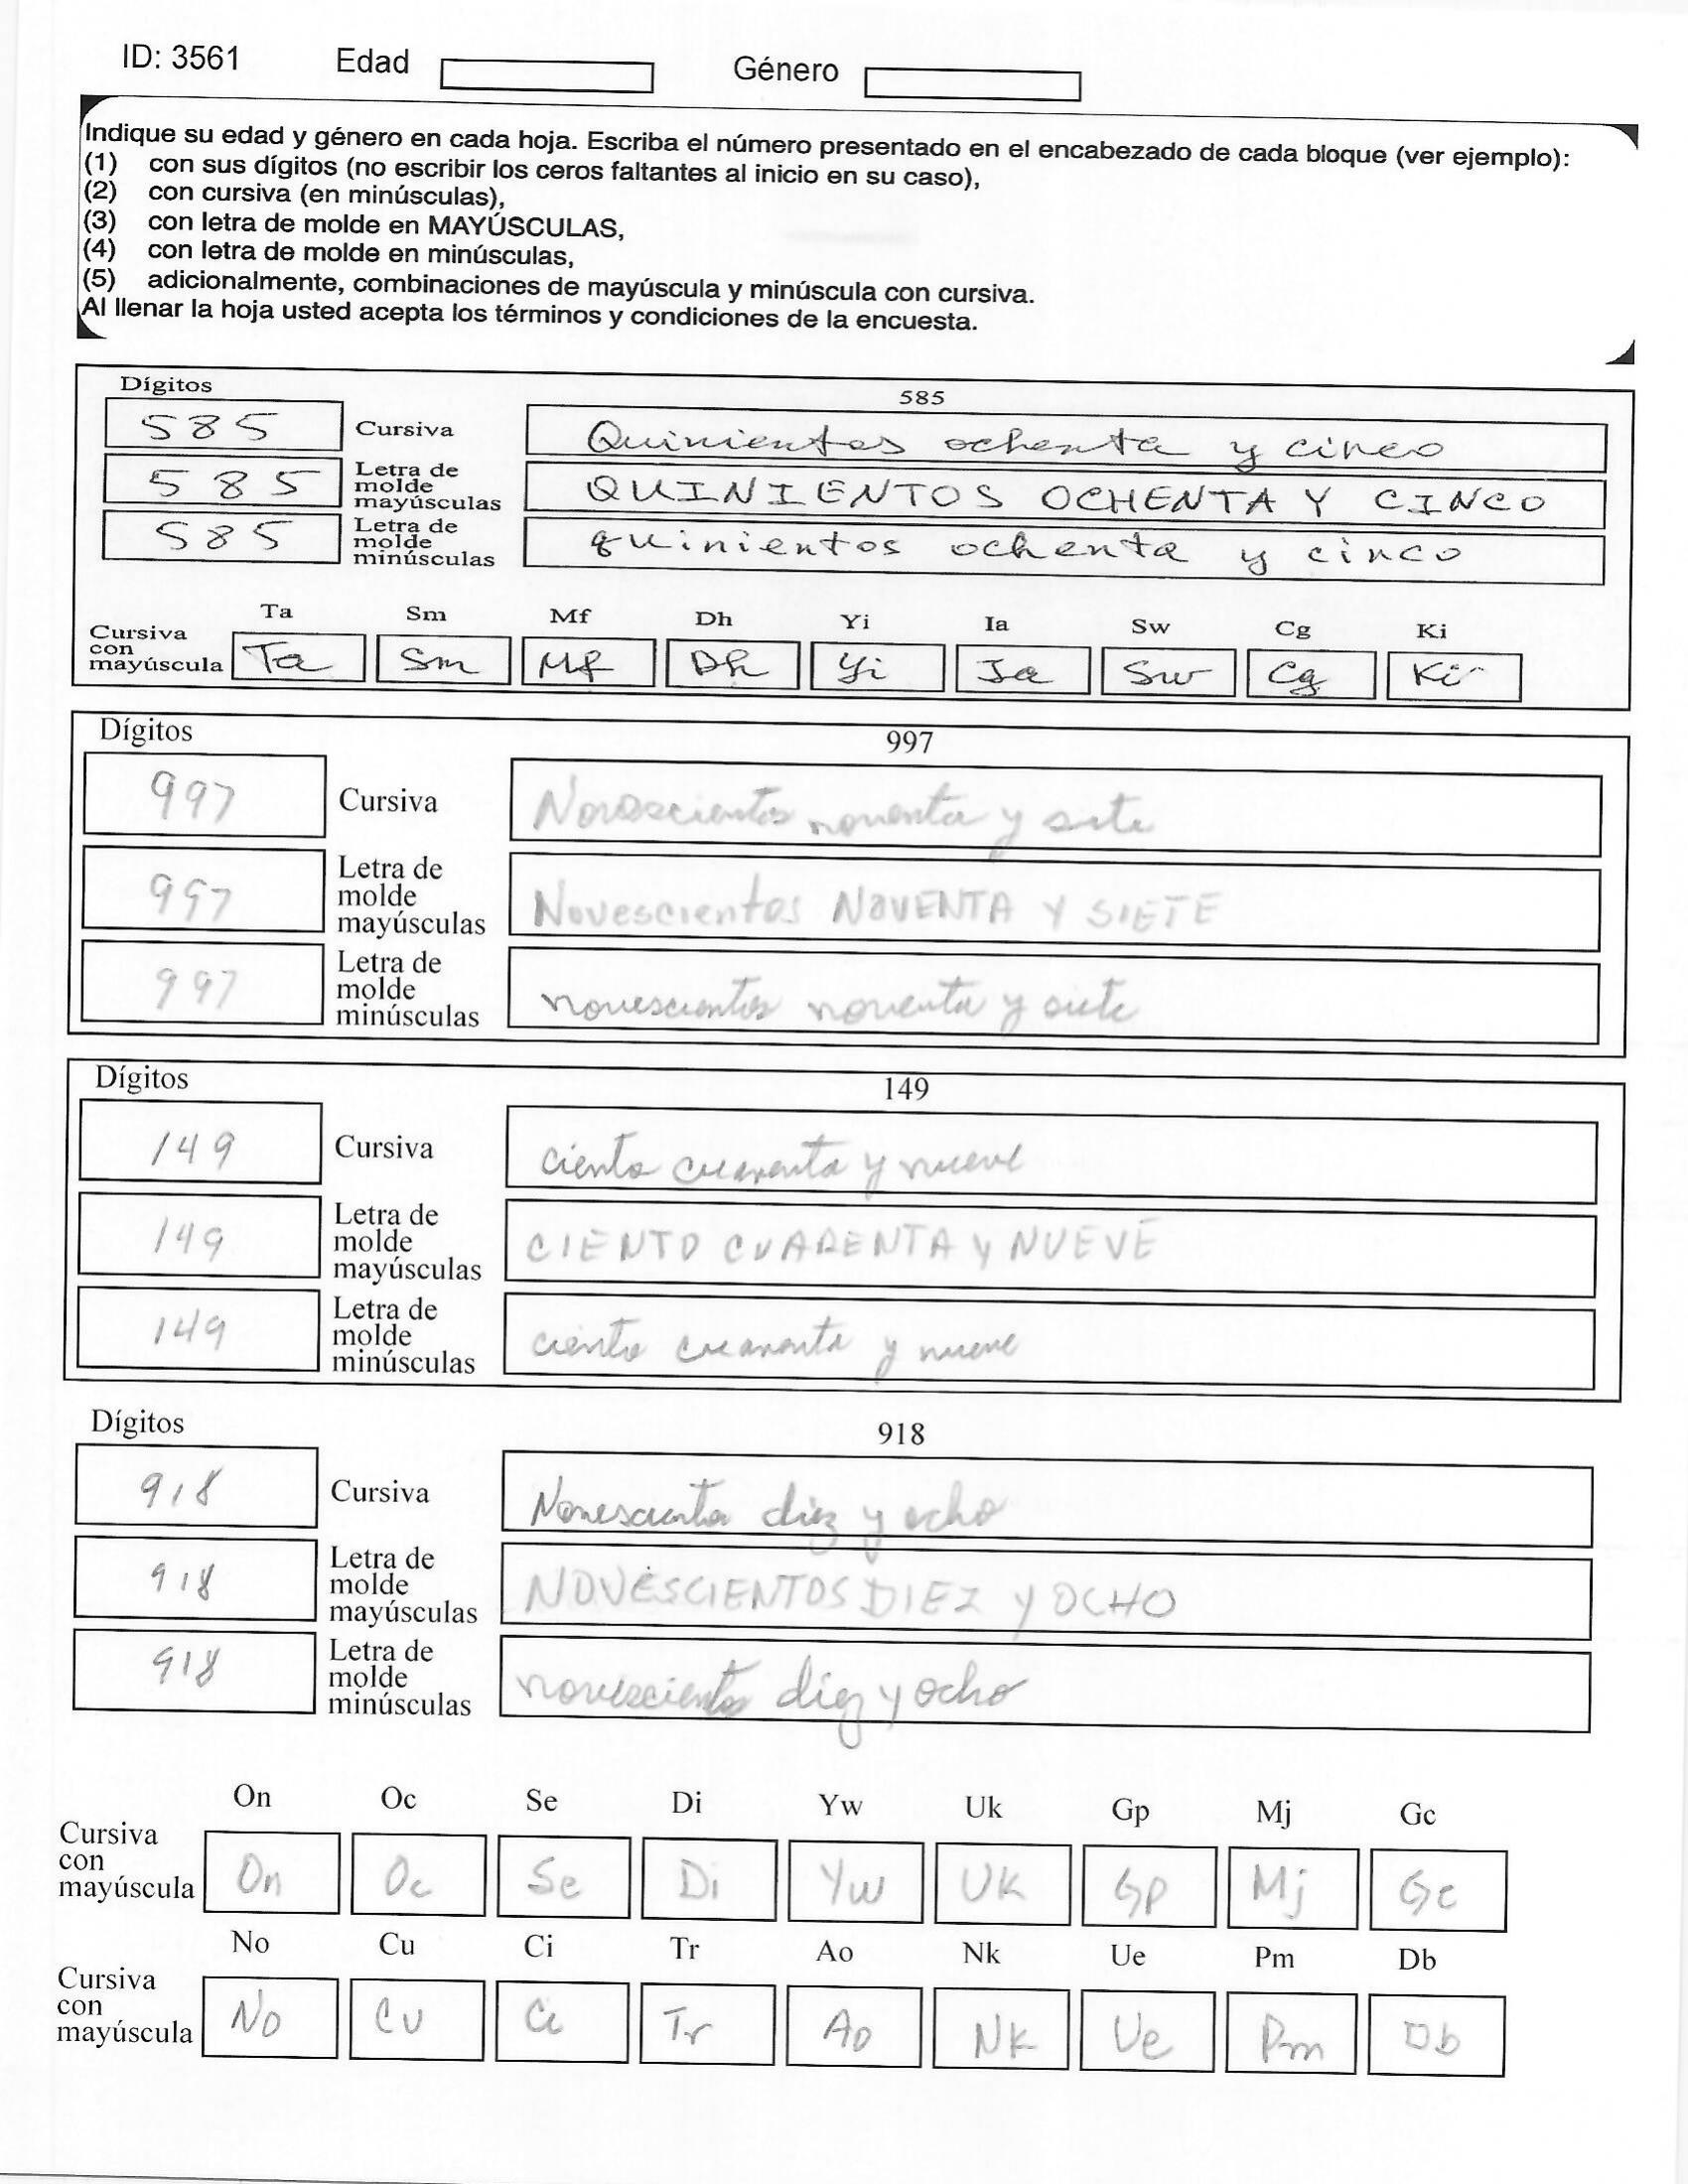 ID: 3561 Edad Género
Indique su edad y género en cada hoja. Escriba el número presentado en el encabezado de cada bloque (ver ejemplo):
(1) con sus dígitos (no escribir los ceros faltantes al inicio en su caso),
(2) con cursiva (en minúsculas),
(3) con letra de molde en MAYÚSCULAS,
(4) con letra de molde en minúsculas,
(5) adicionalmente, combinaciones de mayúscula y minúscula con cursiva.
Al llenar la hoja usted acepta los términos y condiciones de la encuesta.
Dígitos 585
585 Cursiva Quinientos ochenta y cinco
585 Letra de molde mayúsculas QUINIENTOS OCHENTA Y CINCO
585 Letra de molde minúsculas quinientos ochenta y cinco
Ta Sm Mf Dh Yi Ia Sw Cg Ki
Cursiva con mayúscula Ta Sm Mf Dh Yi Ia Sw Cg Ki
Dígitos 997
997 Cursiva noventa y siete
997 Letra de molde mayúsculas Novescientos NOVENTA Y SIETE
997 Letra de molde minúsculas novescientos noventa y siete
Dígitos 149
149 Cursiva ciento cuarenta y nueve
149 Letra de molde mayúsculas CIENTO CUARENTA Y NUEVE
149 Letra de molde minúsculas ciento cuarenta y nueve
Dígitos 918
918 Cursiva Novescientos diez y ocho
918 Letra de molde mayúsculas NOVESCIENTOS DIEZ Y OCHO
918 Letra de molde minúsculas novescientos diez y ocho
On Oc Se Di Yw Uk Gp Mj Gc
Cursiva con mayúscula On Oc Se Di Yw Uk Gp Mj Gc
No Cu Ci Tr Ao Nk Ue Pm Db
Cursiva con mayúscula No Cu Ci Tr Ao Nk Ue Pm Db